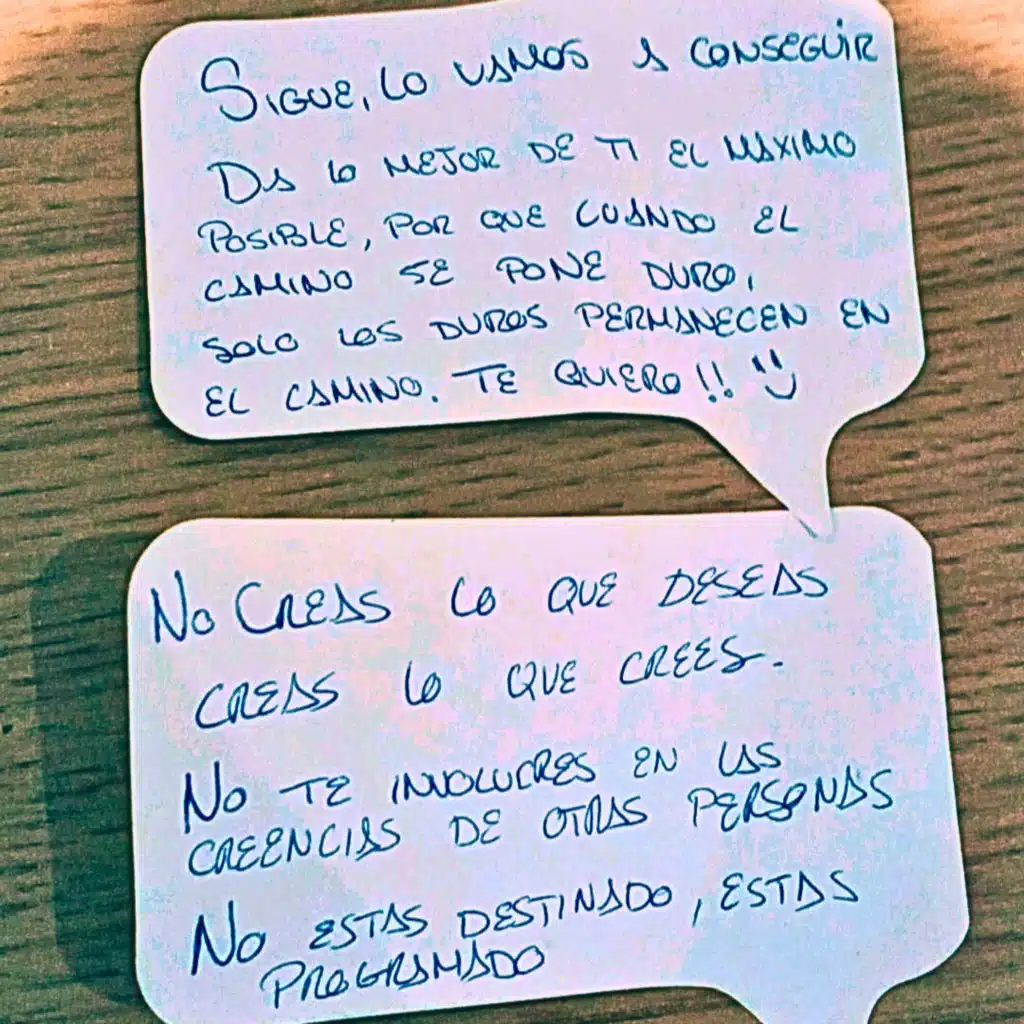 SIGUE, LO VAMOS A CONSEGUIR
DA LO MEJOR DE TI EL MAXIMO
POSIBLE, POR QUE CUANDO EL
CAMINO SE PONE DURO,
SOLO LOS DUROS PERMANECEN EN
EL CAMINO. TE QUIERO!! 
NO CREAS LO QUE DESEAS
CREAS LO QUE CREES.
NO TE INVOLUCRES EN LAS
CREENCIAS DE OTRAS PERSONAS
NO ESTAS DESTINADO, ESTAS
PROGRAMADO